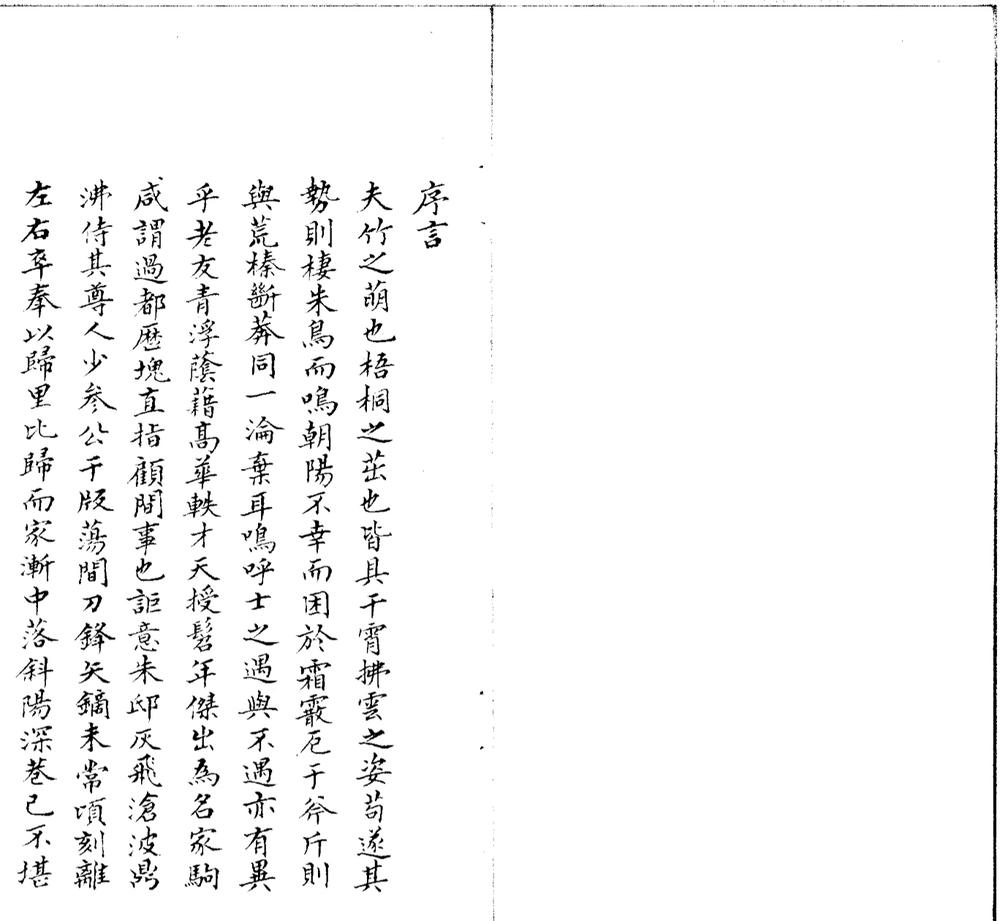 序言
夫竹之萌也梧桐之茁也皆具干霄拂雲之姿苟遂其
勢則棲朱鳥而鳴朝陽不幸而困於霜霰厄于斧斤則
與荒榛斷莽同一淪棄耳嗚呼士之遇與不遇亦有異
乎老友青浮蔭藉高華軼才天授髫年傑出為名家駒
咸謂過都歷塊直指顧間事也詎意朱邸灰飛滄波鼎
沸侍其尊人少参公于版蕩間刀鋒矢鏑未常頃刻離
左右卒奉以歸里比歸而家漸中落斜陽深巷已不堪